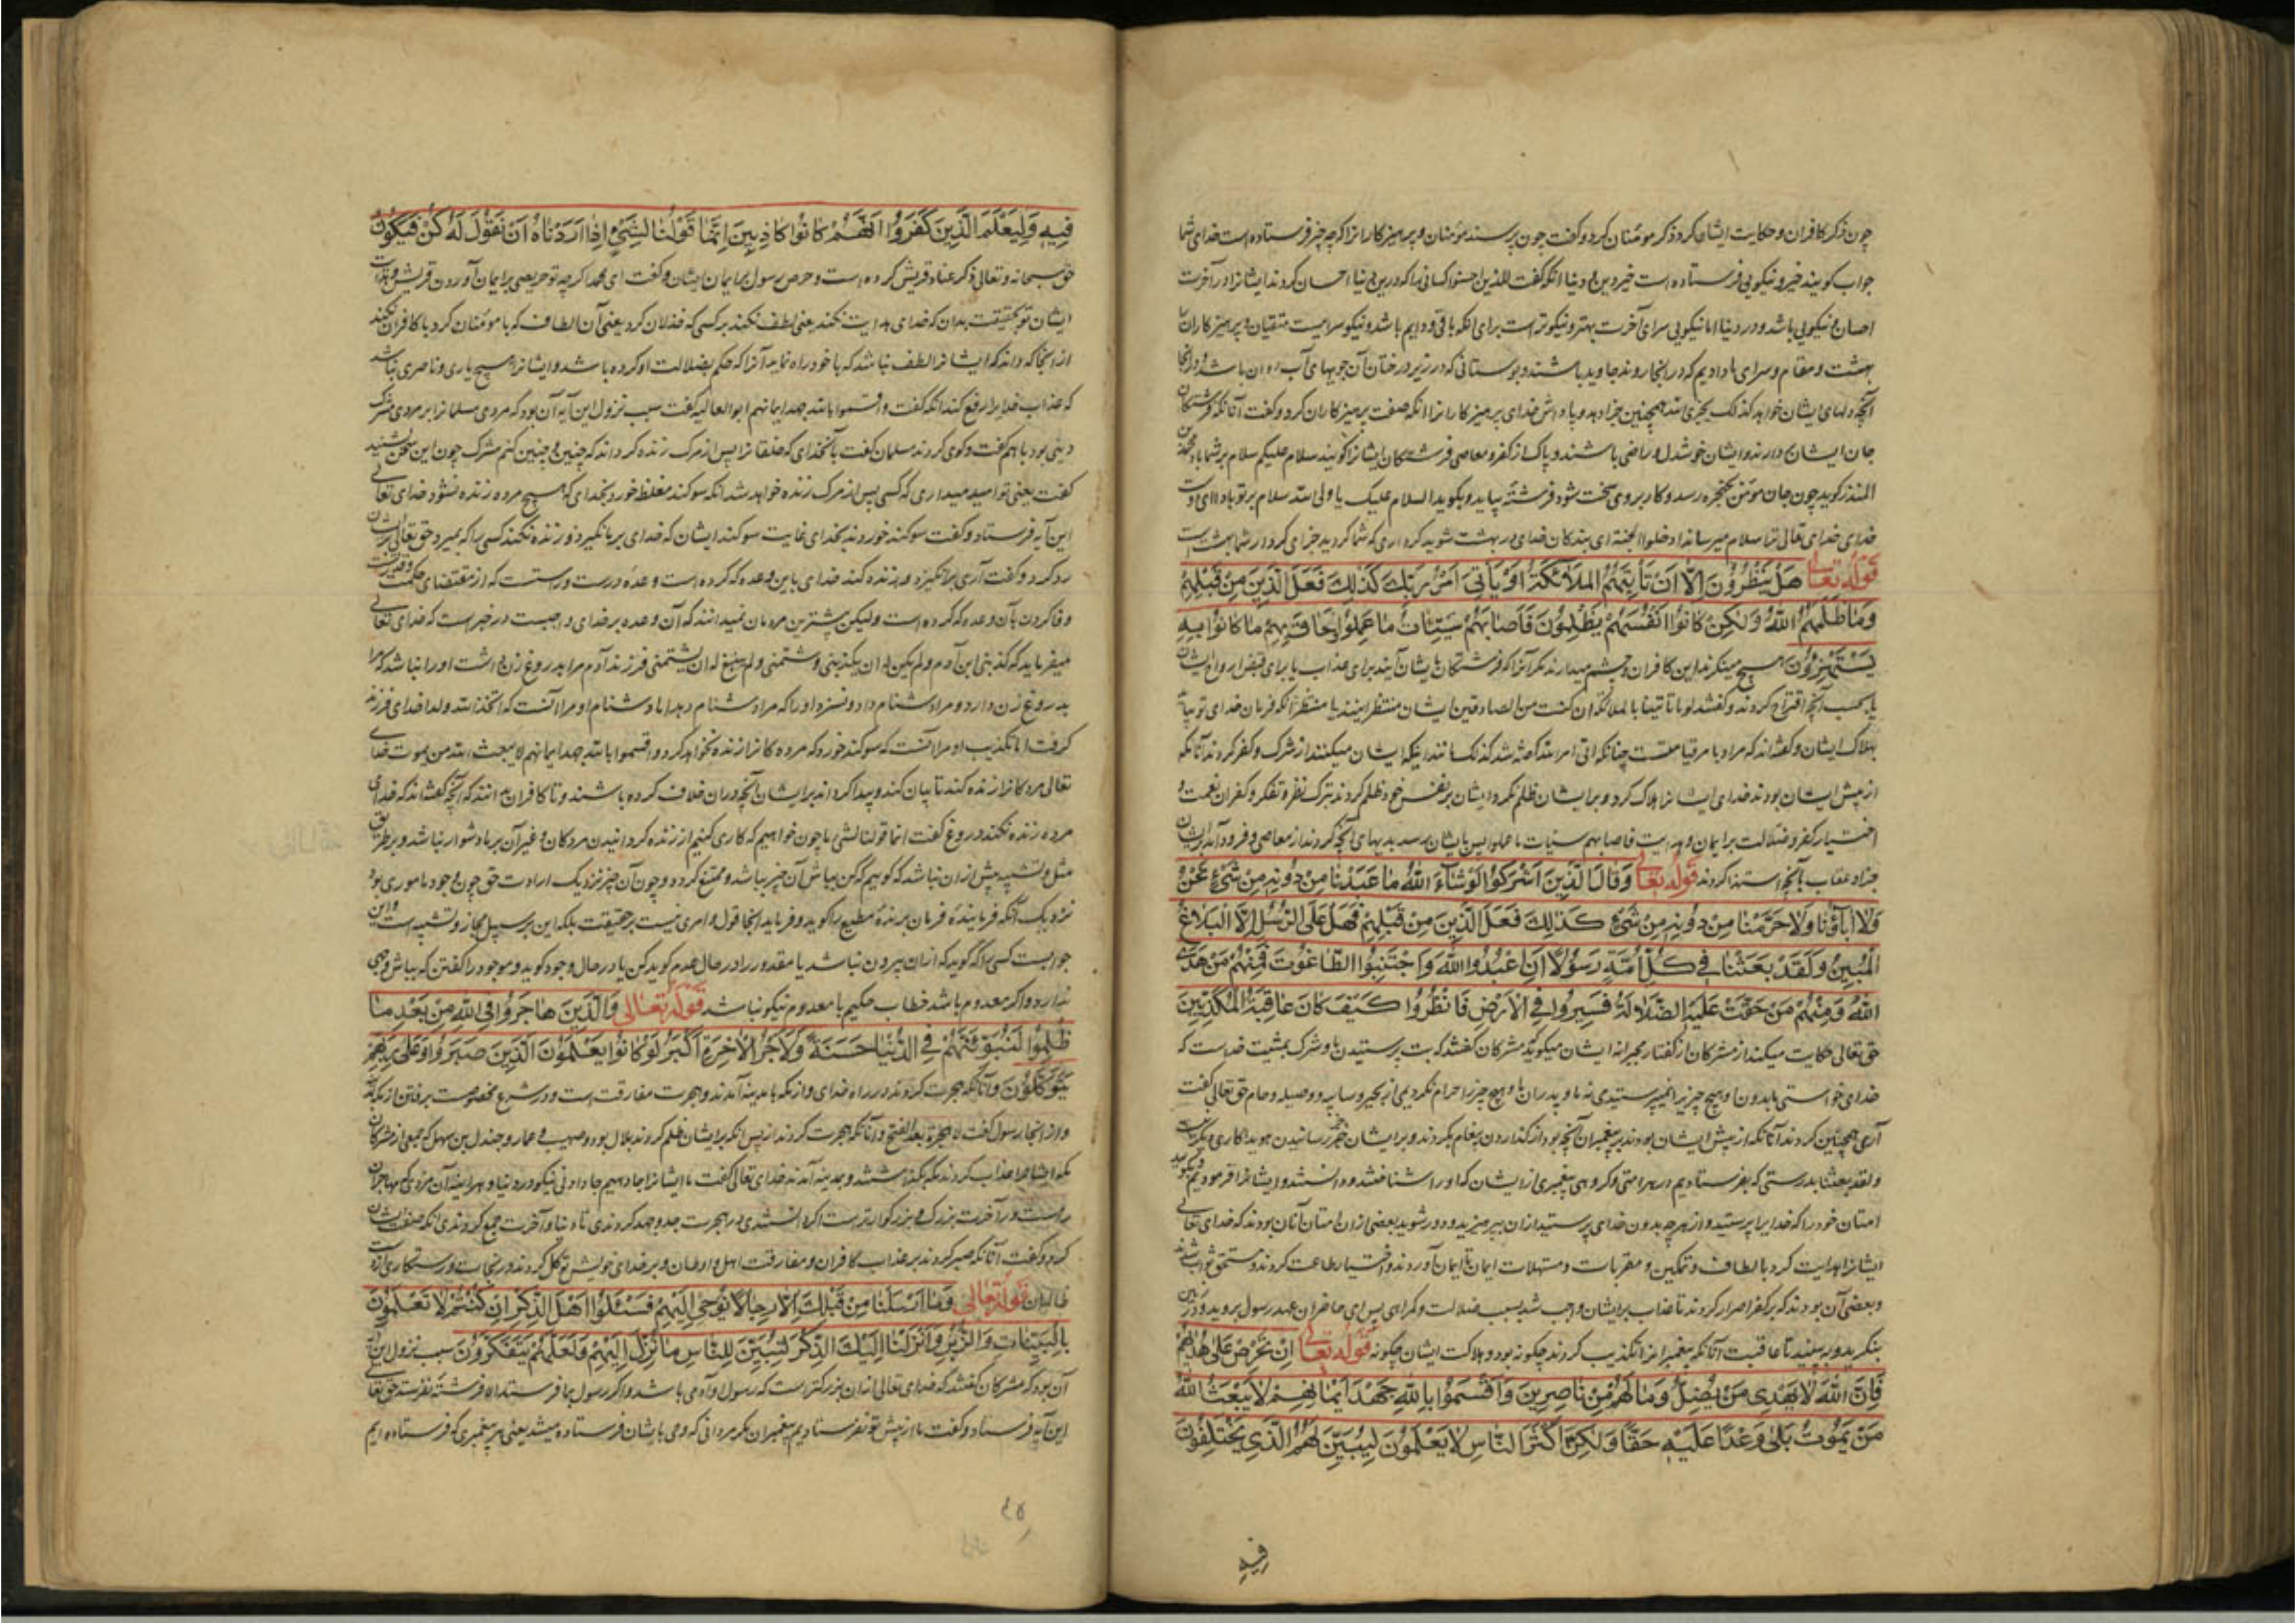 چون ذکر کافران و حکایت ایشان کرد ذکر مومنان کرد و گفت چون پرسند مومنان و پرهیزکارانرا که چه چیز فرستاده است خدای شما
جواب کویند خیر و نیکویی فرستاده است خیر دین و دنیا انکه گفت للذین احسنوا کسانی را که درین دنیا احسان کردند ایشانرا در آخرت
احسان و نیکویی باشد و در دنیا اما نیکویی سرای آخرت بهتر و نیکوتر است برای انکه باقی و دایم باشد و نیکو سراییست متقیان و پرهیزکاران را
بهشت و مقام و سرای که در انجا روند جاوید باشند و بوستانی که در زیر درختان آن جویهای آب روان باشد و در انجا
آنچه دلهای ایشان خواهد کذلک یجزی الله همچنین جزا دهد و پاداش خدای پرهیزکارانرا انکه صفت پرهیزکاران کرد و گفت آنانکه فرشتکان
جان ایشان دارند و ایشان خوشدل و راضی باشند و پاک از کفر و معاصی فرشتکان ایشانرا کویند سلام علیکم سلام بر شما باد
المنذر کوید چون جان مومن بحنجره رسد و کار بر وی سخت شود فرشته بیاید و بکوید السلام علیک یا ولی الله سلام بر تو باد ای دوست
خدای خدای تعالی ترا سلام میرساند ادخلوا الجنة ای بندکان خدای در بهشت شوید کرداری که شما کردید جزای کردار شما بهشتست
قوله تعالی هَلْ يَنْظُرُونَ اِلَّا اَنْ تَأْتِيَهُمُ المَلَائِكَةُ اَوْ يَأْتِيَ اَمْرُ رَبِّكَ كَذٰلِكَ فَعَلَ الَّذِينَ مِنْ قَبْلِهِمْ
وَمَا ظَلَمَهُمُ اللهُ وَلٰكِنْ كَانُوا اَنْفُسَهُمْ يَظْلِمُونَ فَاَصَابَهُمْ سَيِّئَاتُ مَا عَمِلُوا وَحَاقَ بِهِمْ مَا كَانُوا بِهِ
يَسْتَهْزِؤُنَ هیچ مینکرند این کافران و چشم میدارند مکر آنرا که فرشتکان بایشان آیند برای عذاب یا برای قبض ارواح ایشان
هلاک ایشان و گفته‌اند که مراد بامر قیامتست چنانکه اتی امر الله قصه شد کذلک مانند اینکه ایشان میکنند از شرک و کفر کردند آنانکه
از پیش ایشان بودند خدای ایشانرا هلاک کرد و بر ایشان ظلم نکرد ایشان بر نفس خود ظلم کردند بترک نظر و تفکر و کفران نعمت و
اختیار کفر و ضلالت بر ایمان و هدایت فاصابهم سیئات ما عملوا پس بایشان رسید بدیهای آنچه کردند از معاصی و فرود آمد بایشان
جزا و عقاب بآنچه استهزا کردند قوله تعالی وَقَالَ الَّذِينَ اَشْرَكُوا لَوْ شَاءَ اللهُ مَا عَبَدْنَا مِنْ دُونِهِ مِنْ شَيْءٍ نَحْنُ وَ
وَلَا آبَاؤُنَا وَلَا حَرَّمْنَا مِنْ دُونِهِ مِنْ شَيْءٍ كَذٰلِكَ فَعَلَ الَّذِينَ مِنْ قَبْلِهِمْ فَهَلْ عَلَى الرُّسُلِ اِلَّا الْبَلَاغُ
الْمُبِينُ وَلَقَدْ بَعَثْنَا فِي كُلِّ اُمَّةٍ رَسُولًا اَنِ اعْبُدُوا اللهَ وَاجْتَنِبُوا الطَّاغُوتَ فَمِنْهُمْ مَنْ هَدَى
اللهُ وَمِنْهُمْ مَنْ حَقَّتْ عَلَيْهِ الضَّلَالَةُ فَسِيرُوا فِي الْاَرْضِ فَانْظُرُوا كَيْفَ كَانَ عَاقِبَةُ الْمُكَذِّبِينَ
حق تعالی حکایت میکند از مشرکان از گفتار مجبرانه ایشان میکوید مشرکان گفتند که بت پرستیدن ما و شرک بمشیت خداست که
خدای خواستی ما بدون او هیچ چیز را نمیپرستیدی نه ما و پدران ما و هیچ چیز را حرام نکردیمی از بحیره و سایبه و وصیله و حام حق تعالی گفت
آری همچنین کردند آنانکه از پیش ایشان بودند بر پیغمبران آنچه بود از گذاردن پیغام بکردند و بر ایشان جز رسانیدن هویدا کاری دیکر نیست
ولقد بعثنا بدرستی که بفرستادیم در هر امتی و کروهی پیغمبری از ایشان که او را شناختند و دانستند و ایشانرا فرمودیم که بکویید
امتان خود را که خدایرا پرستید و از هرچه بدون خدای پرستید از ان بپرهیزید و دور شوید بعضی از ان امتان آنان بودند که خدای تعالی
ایشانرا هدایت کرد بالطاف و تمکین و مقربات و مسهلات ایمان تا ایمان آوردند و اختیار طاعت کردند و مستحق ثواب شدند
و بعضی آن بودند که بر کفر اصرار کردند تا عذاب بر ایشان واجب شد بسبب ضلالت و گمراهی پس ای حاضران عهد رسول بروید و در زمین
بنکرید و ببینید تا عاقبت آنانکه پیغمبرانرا تکذیب کردند چکونه بود و هلاکت ایشان چکونه قوله تعالی اِنْ تَحْرِصْ عَلَى هُدَاهُمْ
فَاِنَّ اللهَ لَا يَهْدِي مَنْ يُضِلُّ وَمَا لَهُمْ مِنْ نَاصِرِينَ وَاَقْسَمُوا بِاللهِ جَهْدَ اَيْمَانِهِمْ لَا يَبْعَثُ اللهُ
مَنْ يَمُوتُ بَلٰى وَعْدًا عَلَيْهِ حَقًّا وَلٰكِنَّ اَكْثَرَ النَّاسِ لَا يَعْلَمُونَ لِيُبَيِّنَ لَهُمُ الَّذِي يَخْتَلِفُونَ
فیه
فِيهِ وَلِيَعْلَمَ الَّذِينَ كَفَرُوا اَنَّهُمْ كَانُوا كَاذِبِينَ اِنَّمَا قَوْلُنَا لِشَيْءٍ اِذَا اَرَدْنَاهُ اَنْ نَقُولَ لَهُ كُنْ فَيَكُونُ
حق سبحانه و تعالی ذکر عناد قریش کرده است و حرص رسول بر ایمان ایشان و گفت ای محمد اکرچه تو حریصی بر ایمان آوردن قریش و هدایت
ایشان تو بحقیقت بدان که خدای هدایت نکند یعنی لطف نکند بر کسی که خذلان کرد یعنی آن الطاف که با مومنان کرد با کافران نکند
از انجا که داند که ایشانرا لطف نباشد که با خود راه نماید آنرا که حکم بضلالت او کرده باشد و ایشانرا هیچ یاری و ناصری نباشد
که عذاب خدایرا رفع کند انکه گفت و اقسموا بالله جهد ایمانهم ابو العالیه گفت سبب نزول این آیه آن بود که مردی مسلمانرا بر مردی مشرک
دینی بود با هم گفت و کوی کردند مسلمان گفت بآنخدای که خلقانرا پس از مرک زنده کرداند که چنین و چنین کنم مشرک چون این سخن بشنید
گفت یعنی تو امید میداری که کسی پس از مرک زنده خواهد شد انکه سوکند مغلظ خورد بخدای که هیچ مرده زنده نشود خدای تعالی
این آیه فرستاد و گفت سوکند خوردند بخدای غایت سوکند ایشان که خدای بر نانکیزد و زنده نکند کسی را که بمیرد حق تعالی بر ایشان
رد کرد و گفت آری برانکیزد و زنده کند خدای باین وعده که کرده است وعده درست و راستست که از مقتضای حکمت
وفا کردن بآن وعده که کرده است ولیکن بیشترین مردمان نمیدانند که آن وعده بر خدای واجبست در خبر است که خدای تعالی
میفرماید که کذبنی ابن آدم ولم یکن له ان یکذبنی وشتمنی ولم ینبغ له ان یشتمنی فرزند آدم مرا بدروغ زن داشت او را نباشد که مرا
بدروغ زن دارد و مرا دشنام داد و نسزد او را که مرا دشنام دهد اما دشنام او مرا آنست که اتخذ الله ولدا خدای فرزند
کرفت اما تکذیب او مرا آنست که سوکند خورد که مردهکانرا زنده نخواهد کرد و اقسموا بالله جهد ایمانهم لا یبعث الله من یموت خدای
تعالی مردکانرا زنده کند تا بیان کند و پیدا کرداند بر ایشان آنچه در ان خلاف کرده باشند و تا کافران بدانند که آنچه گفته‌اند که خدای
مرده زنده نکند دروغ گفت انما قولنا لشیء ما چون خواهیم که کاری کنیم از زنده کردانیدن مردکان و غیر آن بر ما دشوار نباشد و بر طریق
مثل و تشبیه بیش از ان نباشد که کوییم که کن بباش آن چیز بباشد و ممتنع نکردد و چون آن چیز نزدیک ارادت حق چون وجود ماموری بود
نزدیک آنکه فرماینده فرمان برنده مطیع را کوید و فرماید اینجا قول و امری نیست بر حقیقت بلکه این بر سبیل مجاز و تشبیه است و این
جوابست کسی را که گوید که از ان بیرون نباشد یا مقدور را در حال عدم کوید کن یا در حال وجود کوید و موجود را گفتن که بباش وجهی
ندارد و اکر معدوم باشد خطاب حکیم با معدوم نیکو نباشد قوله تعالی وَالَّذِينَ هَاجَرُوا فِي اللهِ مِنْ بَعْدِ مَا
ظُلِمُوا لَنُبَوِّئَنَّهُمْ فِي الدُّنْيَا حَسَنَةً وَلَاَجْرُ الْآخِرَةِ اَكْبَرُ لَوْ كَانُوا يَعْلَمُونَ الَّذِينَ صَبَرُوا وَعَلَى رَبِّهِمْ
يَتَوَكَّلُونَ و آنانکه هجرت کردند در راه خدای و از مکه با مدینه آمدند و هجرت مفارقت است و در شرع مخصوصست برفتن از مکه
و از انجا رسول گفت لا هجرة بعد الفتح و آنانکه هجرت کردند از پس انکه بر ایشان ظلم کردند بلال بود و صهیب و عمار و جندل بن سهیل که جمعی از مشرکان
مکه ایشانرا عذاب کردند بمکه بکذاشتند و بمدینه آمدند خدای تعالی گفت ما ایشانرا جا دهیم جا دادنی نیکو در دنیا و هر اینه آن مزدی که مهاجران
راست در آخرت بزرک و بزرکوارتر است اگر دانستندی در هجرت جد و جهد کردندی تا دنیا و آخرت جمع کردندی انکه صفت ایشان
کرد و گفت آنانکه صبر کردند بر عذاب کافران و مفارقت اهل و اوطان و بر خدای خویش توکل کردند و نجات و رستکاری از وی
طالبان قوله تعالی وَمَا اَرْسَلْنَا مِنْ قَبْلِكَ اِلَّا رِجَالًا نُوحِي اِلَيْهِمْ فَسْئَلُوا اَهْلَ الذِّكْرِ اِنْ كُنْتُمْ لَا تَعْلَمُونَ
بِالْبَيِّنَاتِ وَالزُّبُرِ وَاَنْزَلْنَا اِلَيْكَ الذِّكْرَ لِتُبَيِّنَ لِلنَّاسِ مَا نُزِّلَ اِلَيْهِمْ وَلَعَلَّهُمْ يَتَفَكَّرُونَ سبب نزول این آیه
آن بود که مشرکان گفتند که خدای تعالی از ان بزرکتر است که رسول او آدمی باشد و اکر رسول بما فرستد الا فرشته نفرستد حق تعالی
این آیه فرستاد و گفت ما از پیش تو نفرستادیم پیغمبران مکر مردانی که وحی بایشان فرستاده میشد یعنی هر پیغمبری که فرستاده‌ایم